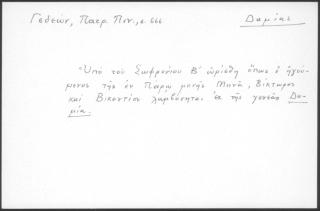 Γεδεών, Πατρ. Πιν., σ. 666
Δαμίας
"Ὑπό τοῦ Σωφρονίου Β΄ ὡρίσθη ὅπως ὁ ἡγού-
μενος τῆς ἐν Πάρῳ μονῆς Μηνᾶ, Βίκτωρος
καί Βικεντίου λαμβάνηται ἐκ τῆς γενεᾶς Δα-
μία.